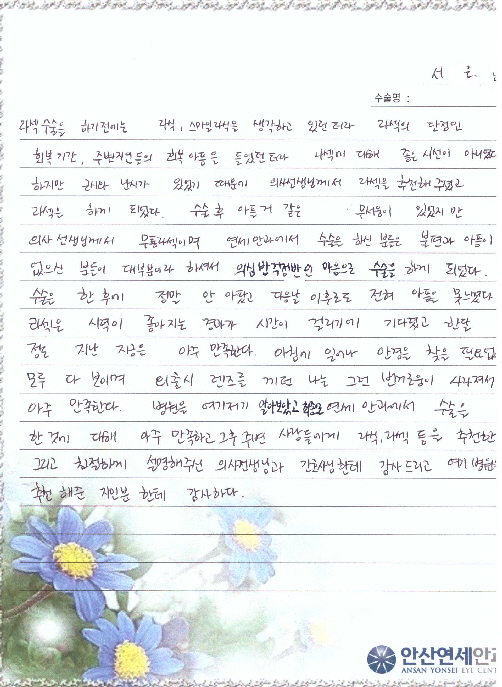 서 은
수술명 :
라섹수술을 하기전에는 라식, 스마일라식을 생각하고 있던터라 라섹의 단점인
회복기간, 주변지인들의 회복아픔을 들었던터라 라섹에 대해 좋은 시선이 아니었다
하지만 근시와 난시가 있었기 때문에 의사선생님께서 라섹을 추천해 주셨고
라섹을 하게 되었다. 수술후 아픔거 같은 무서움이 있었지만
의사선생님께서 무통라섹이며 연세안과에서 수술을 하신 분들은 불편과 아픔이
없으신 분들이 대부분이라 하셔서 의심반걱정반인 마음으로 수술을 하게 되었다.
수술을 한 후에 정말 안 아팠고 다음날 이후로도 전혀 아픔을 못느꼈다
라식은 시력이 좋아지는 결과가 시간이 걸리기에 기다렸고 한달
정도 지난 지금은 아주 만족한다. 아침에 일어나 안경을 찾을 필요없
모두 다 보이며 외출시 렌즈를 끼던 나는 그런 번거로움이 사라져서
아주 만족한다. 병원은 여기저기 알아보았고 연세안과에서 수술을
한것에 대해 아주 만족하고 그후 주변 사람들에게 라식, 라섹 등을 추천한
그리고 친절하게 설명해주신 의사선생님과 간호사님한테 감사드리고 여기 병원
추천해준 지인분 한테 감사하다.
안산연세안과
ANSAN YONSEI EYE CENT